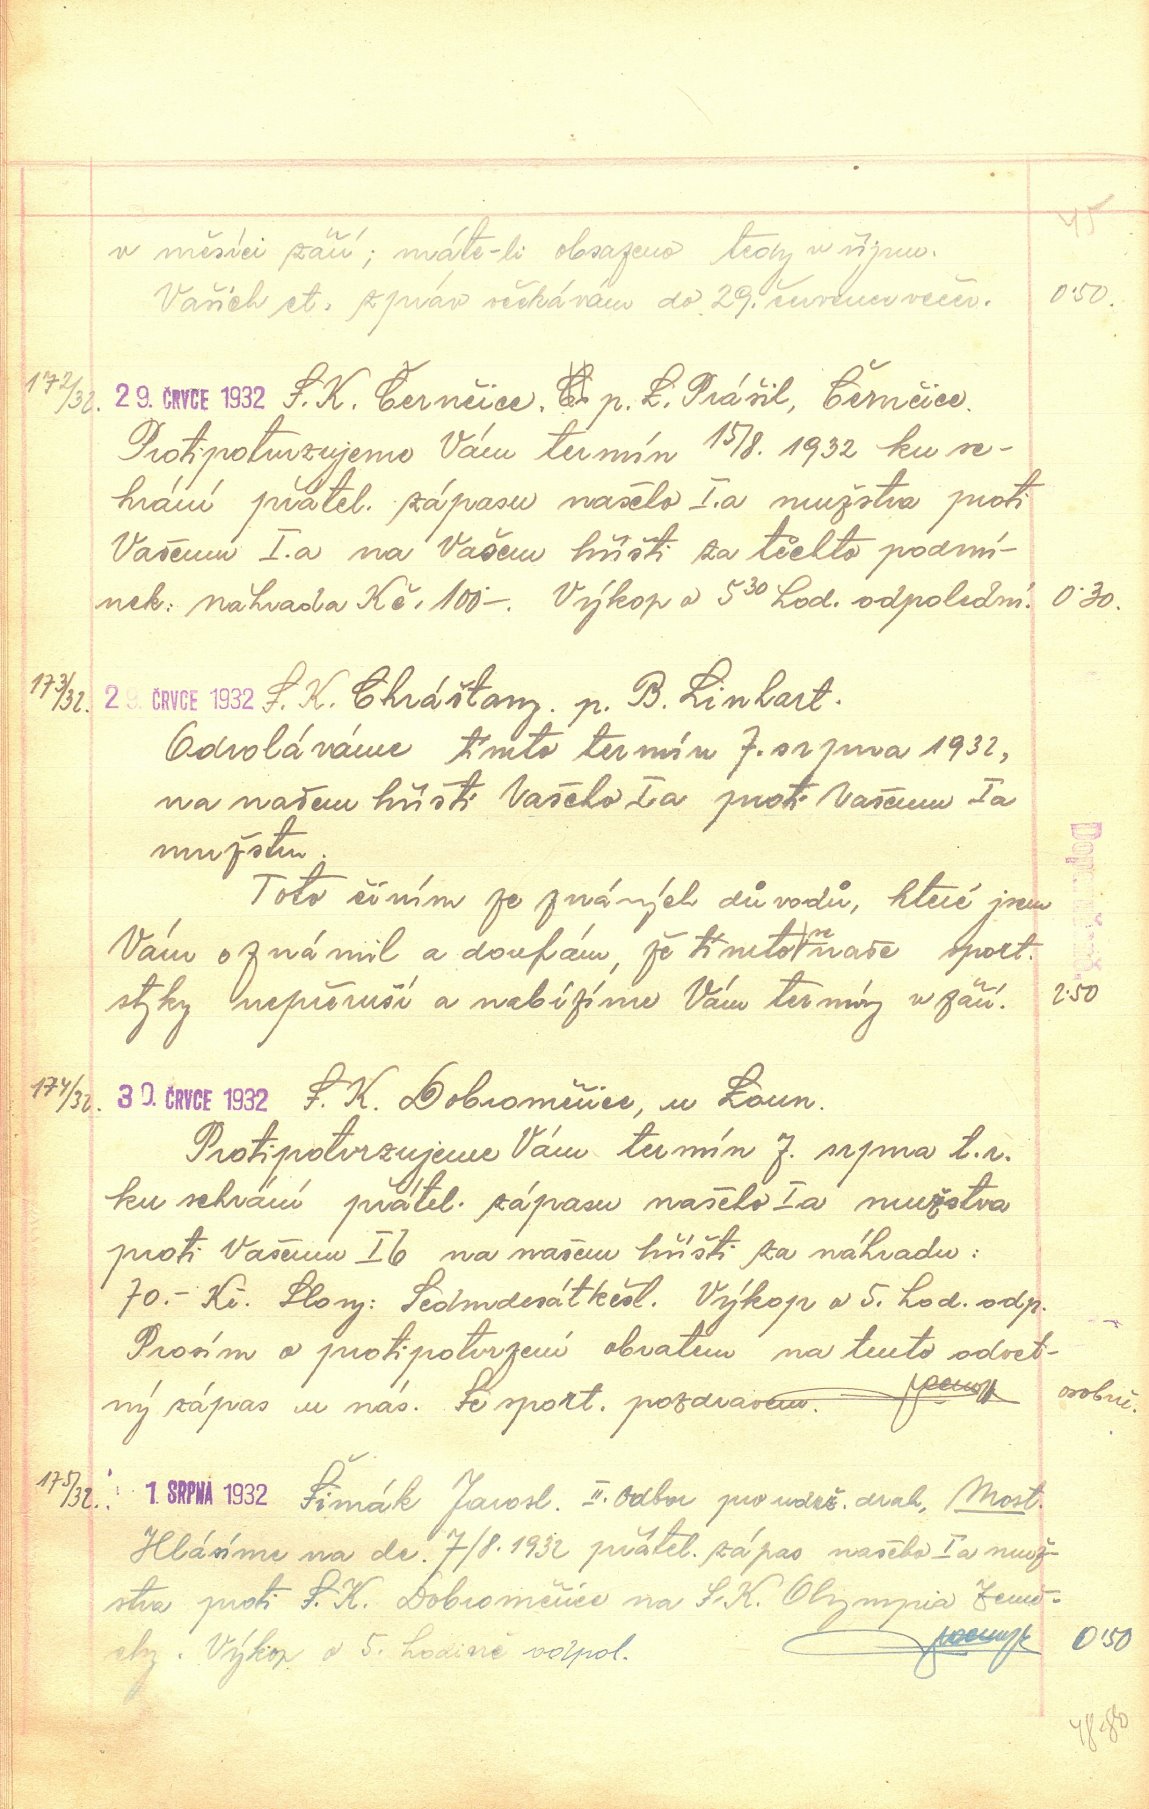 45
v měsíci září; máte-li obsazeno tedy v říjnu.
Vašich ct. zpráv očekávám do 29. července večer. 0·50.
172/32. 29. ČRVCE 1932 S. K. Černčice. p. L. Prášil, Černčice.
Protipotvrzujeme Vám termín 15/8. 1932 ku se-
hrání přátel. zápasu našeho I.a mužstva proti
Vašemu I.a na Vašem hřišti za těchto podmí-
nek: náhrada Kč. 100–. Výkop o 5³⁰ hod. odpolední. 0·30.
173/32. 29. ČRVCE 1932 S. K. Chrášťany. p. B. Linhart.
Odvoláváme tímto termín 7. srpna 1932,
na našem hřišti Vašeho I.a proti Vašemu Ia
mužstvu.
Toto činím ze známých důvodů, které jsem
Vám oznámil a doufám, že tímto se naše sport.
styky nepřeruší a nabízíme Vám termíny v září. 2·50
174/32. 30. ČRVCE 1932 S. K. Dobroměřice, u Loun.
Protipotvrzujeme Vám termín 7. srpna t.r.
ku sehrání přátel. zápasu našeho Ia mužstva
proti Vašemu Ib na našem hřišti za náhradu:
70.– Kč. Slovy: Sedmdesátkčsl. Výkop o 5. hod. odp.
Prosím o protipotvrzení obratem na tento odvet-
ný zápas u nás. Se sport. pozdravem. osobně.
175/32. 1. SRPNA 1932 Šimák Jarosl. II. Odbor pro udrž. drah, Most.
Hlásíme na de. 7/8. 1932 přátel. zápas našeho Ia muž-
stva proti S. K. Dobroměřice na S. K. Olympia Země-
chy. Výkop o 5. hodině odpol. 0·50
48·80